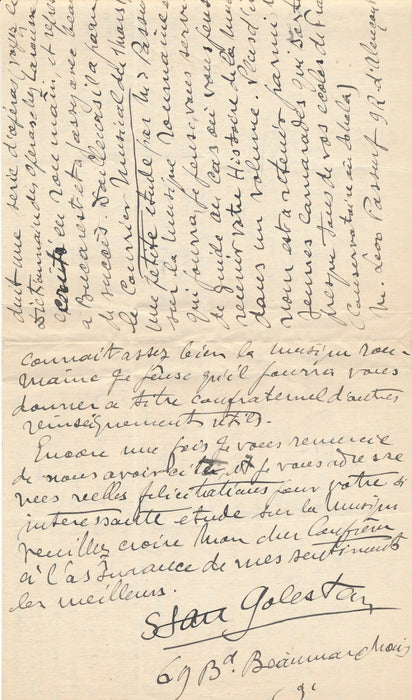 duit une serie d'opéras, voyez le
Dictionnaire des Operas chez Larousse
ecrits en roumain, et représentés
a Bucarest et a Iassy avec beaucoup
de succès. D'ailleurs il a paru dans
le Courrier Musical de
une petite etude par Mr Passurf
sur la musique roumaine
qui pourra, je pense, vous servir
de guide au cas ou vous pensez
reunir votre Histoire de la Musique
dans un volume. Plus d'un
nom est a retenir parmi les
jeunes camarades qui sortent
presque tous de vos ecoles de Paris
(Conservatoire ou Schola)
Mr. Leon Passurf 92 r. d'Alençon
connait assez bien la musique rou-
maine je pense qu'il pourra vous
donner a titre confraternel d'autres
renseignements utiles.
Encore une fois je vous remercie
de nous avoir cité et je vous adresse
mes reelles felicitations pour votre si
interessante etude sur la musique
veuillez croire mon cher Confrère
à l'assurance de mes sentiments
les meilleurs.
Stan Golestan
69 Bd. Beaumarchais